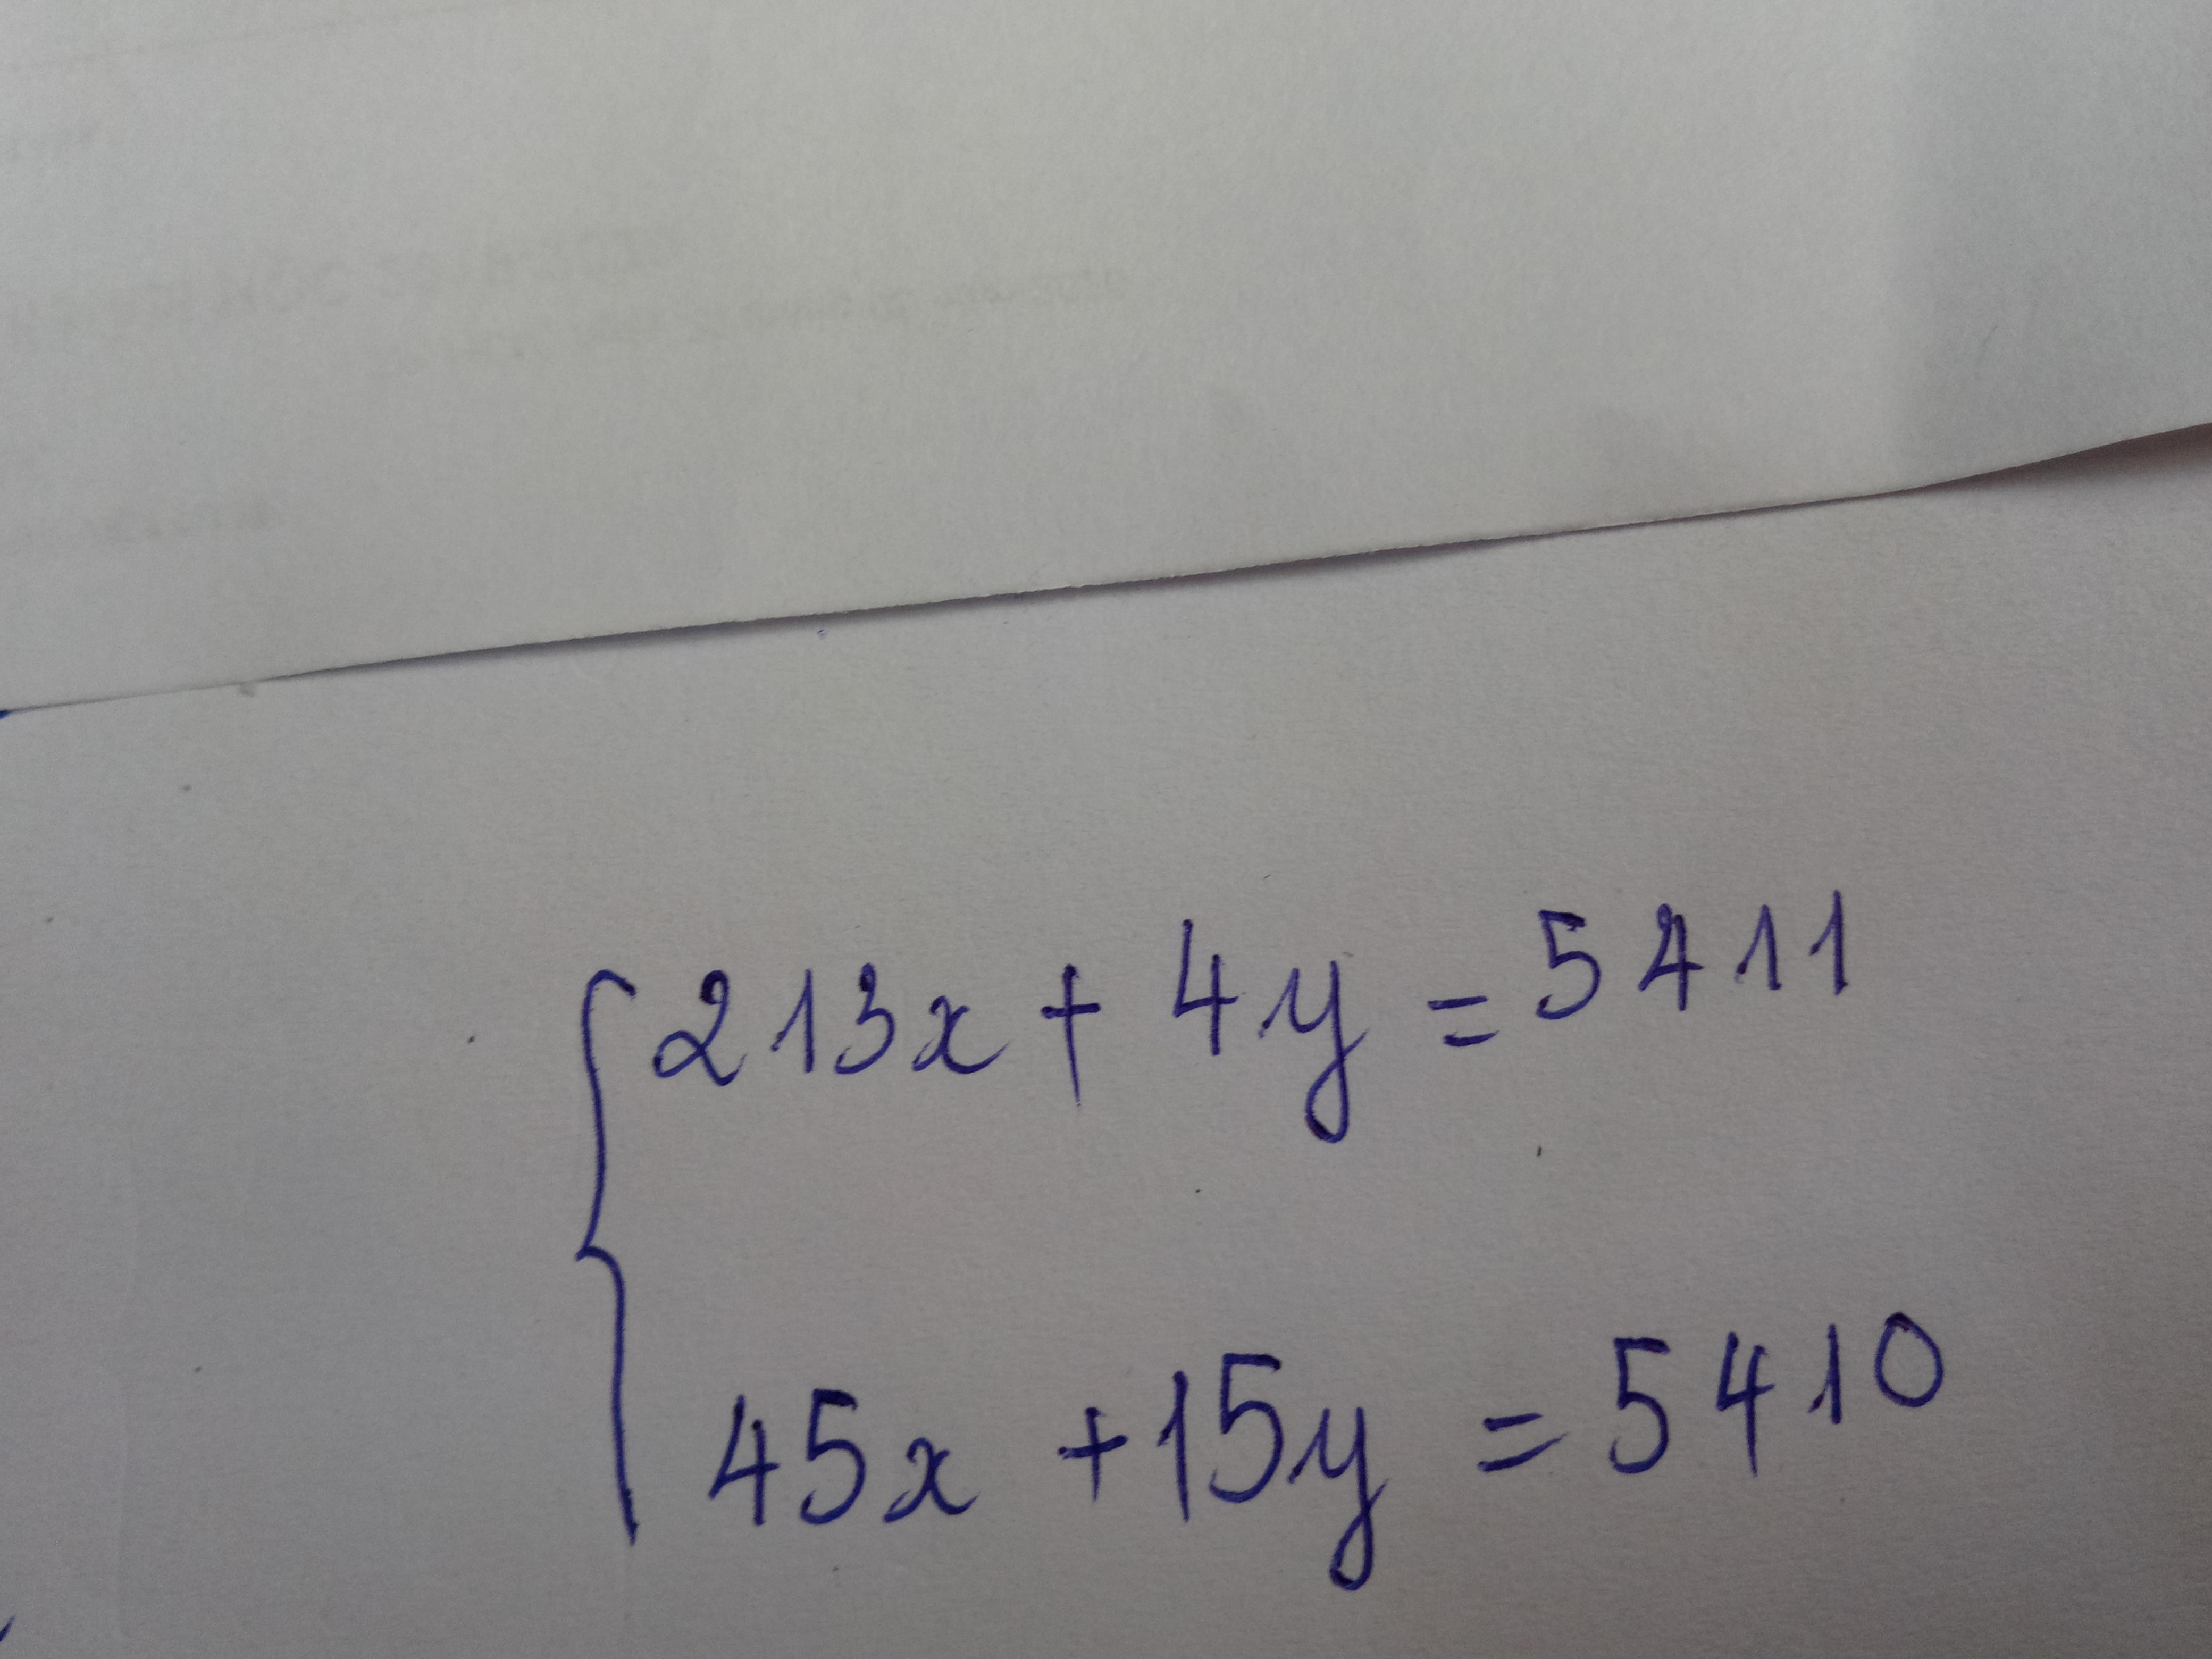 213x + 4y = 5411
45x + 15y = 5410